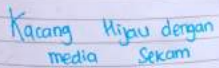 Kacang Hijau dengan
media Sekam